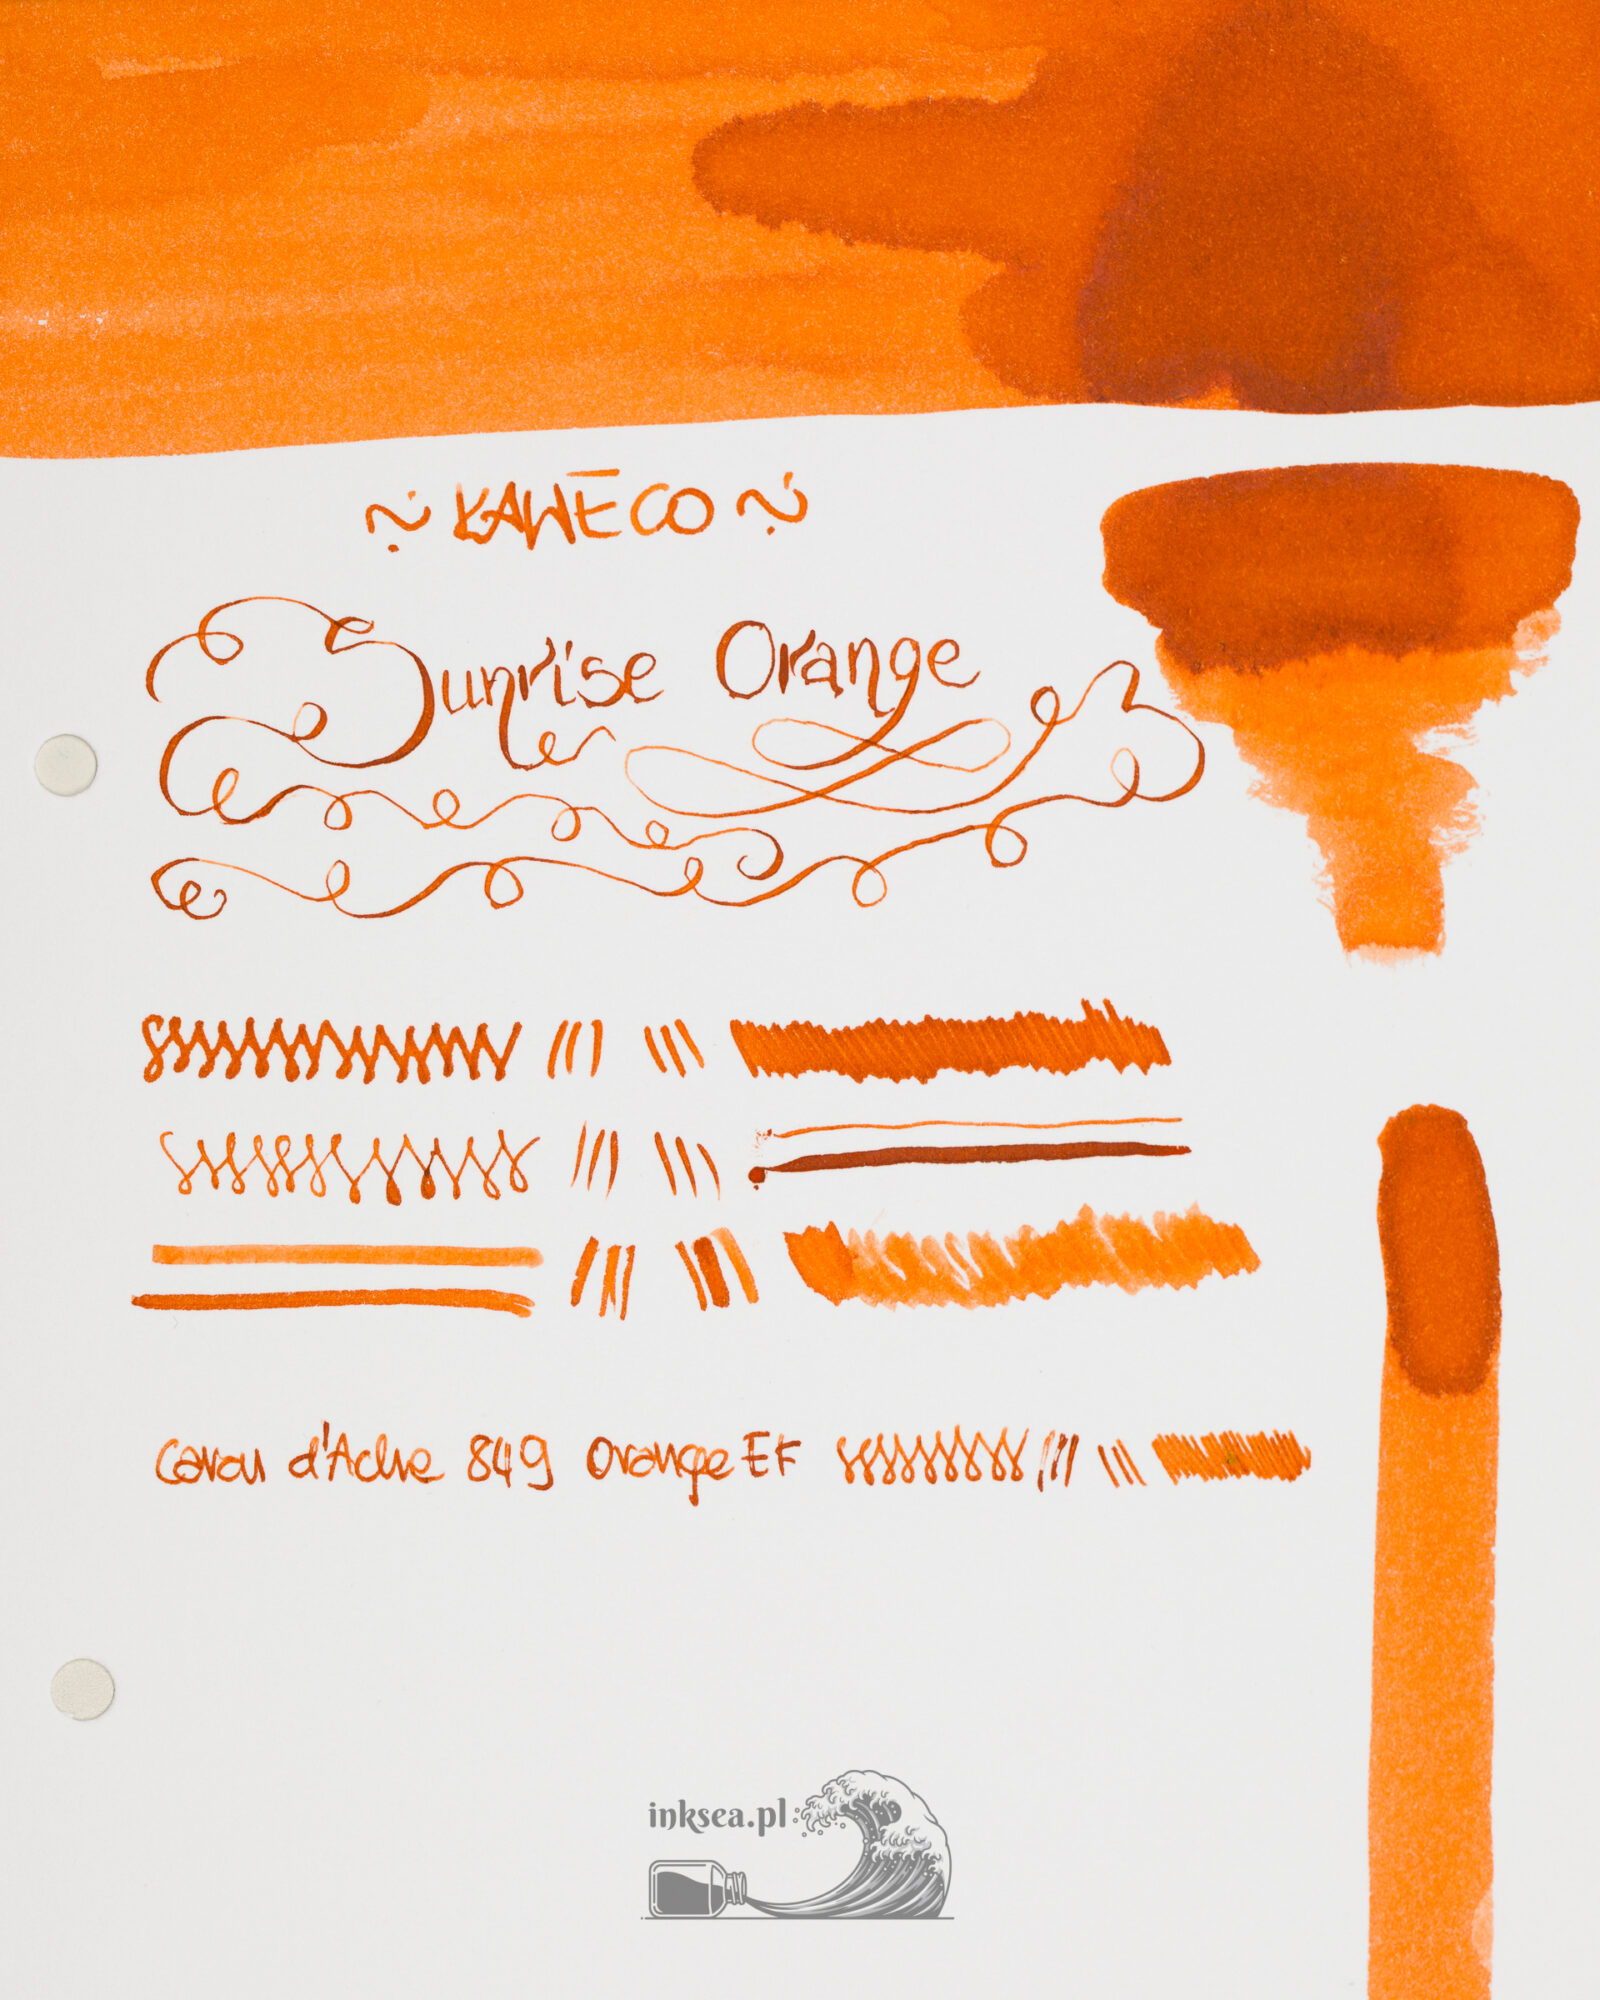 ~ KAWECO ~
Sunrise Orange
Caran d'Ache 849 Orange EF
inksea.pl